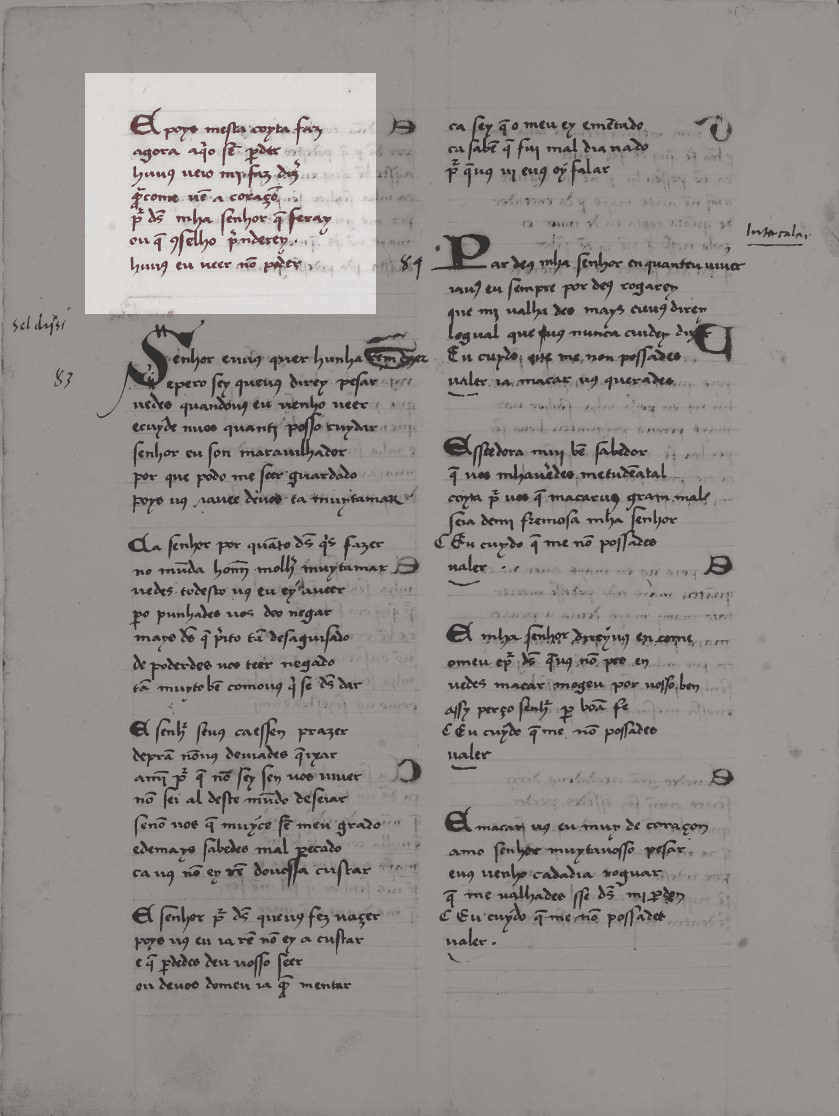 E poys mesta coyta faz
agora aq̃o sẽ p̱der
huuꝯ ueio mi faz dʒ̃
q̃come uẽ a coraçõ
p̃ ds̃ mha senhor q̃ seray
ou q̃ ꝯselho p̃nderey
huuꝯ eu ueer nõ poder
Senhor euuꝯ quer hunha rem dizer
e pero sey queuꝯ direy pesar
uedes quandouꝯ eu uenho ueer
ecuyde nuos quantj posso cuydar
senhor eu son marauilhador
por que podo me seer guardado
poys uꝯ
Ca senhor por quãto ds̃ q̃s fazer
no mũda homẽ molh̃ muytamar
uedes todesto uꝯ eu ey aueer
p̱o punhades uos doo negar
mays ds̃ q̃ p̃ito tã desaguisado
de poderdes uos teer negado
tã muyto bẽ comouꝯ q̃ se ds̃ dar
E senh̃ seuꝯ caessen prazer
deprã nõuꝯ deuiades q̃ixar
amĩ p̃ q̃ nõ sey sen uos uiuer
nõ sei al deste mũdo deseiar
senõ uos q̃ muyce sẽ meu grado
edemays sabedes mal pecado
ca uꝯ nõ ey rẽ douossa custar
E senhor p̃ ds̃ queuꝯ fez naçer
poys uꝯ eu ia rẽ nõ ey a custar
e q̃ p̱dedes deu uosso seer
ou deuos domeu ia q̃ mentar
ca sey q̃ o meu ey emẽtado
ca sabẽ q̃ fui mal dia nado
p̃ q̃uꝯ ui euꝯ oy falar
Par deꝯ mha senhor enquanteu uiuer
iauꝯ eu sempre por deꝯ rogarey
que mi ualha des mays euuꝯ direy
logual que euꝯ nunca cuidey dizer
Eu cuydo que me non possades
ualer ia macar uꝯ querades
Esstedora muj bẽ sabedor
q̃ uos mhauedes metudẽ atal
coyta p̃ uos q̃ macaruꝯ gram mal
seia demi fremosa mha senhor
Eu cuydo q̃ me nõ possades
ualer
E mha senhor direyuꝯ en come
omeu ep̃ ds̃ q̃uꝯ nõ pes en
uedes macar mogeu por uosso ben
assy perço senh̃ p̱ boã fe
Eu cuydo q̃me nõ possades
ualer
E macar uꝯ eu muy de coraçon
amo senhor muytauosso pesar
euꝯ uenho cadadia roguar
q̃ me ualhades sse ds̃ mj p̱don
Eu cuydo q̃me nõ possades
ualer
83
84